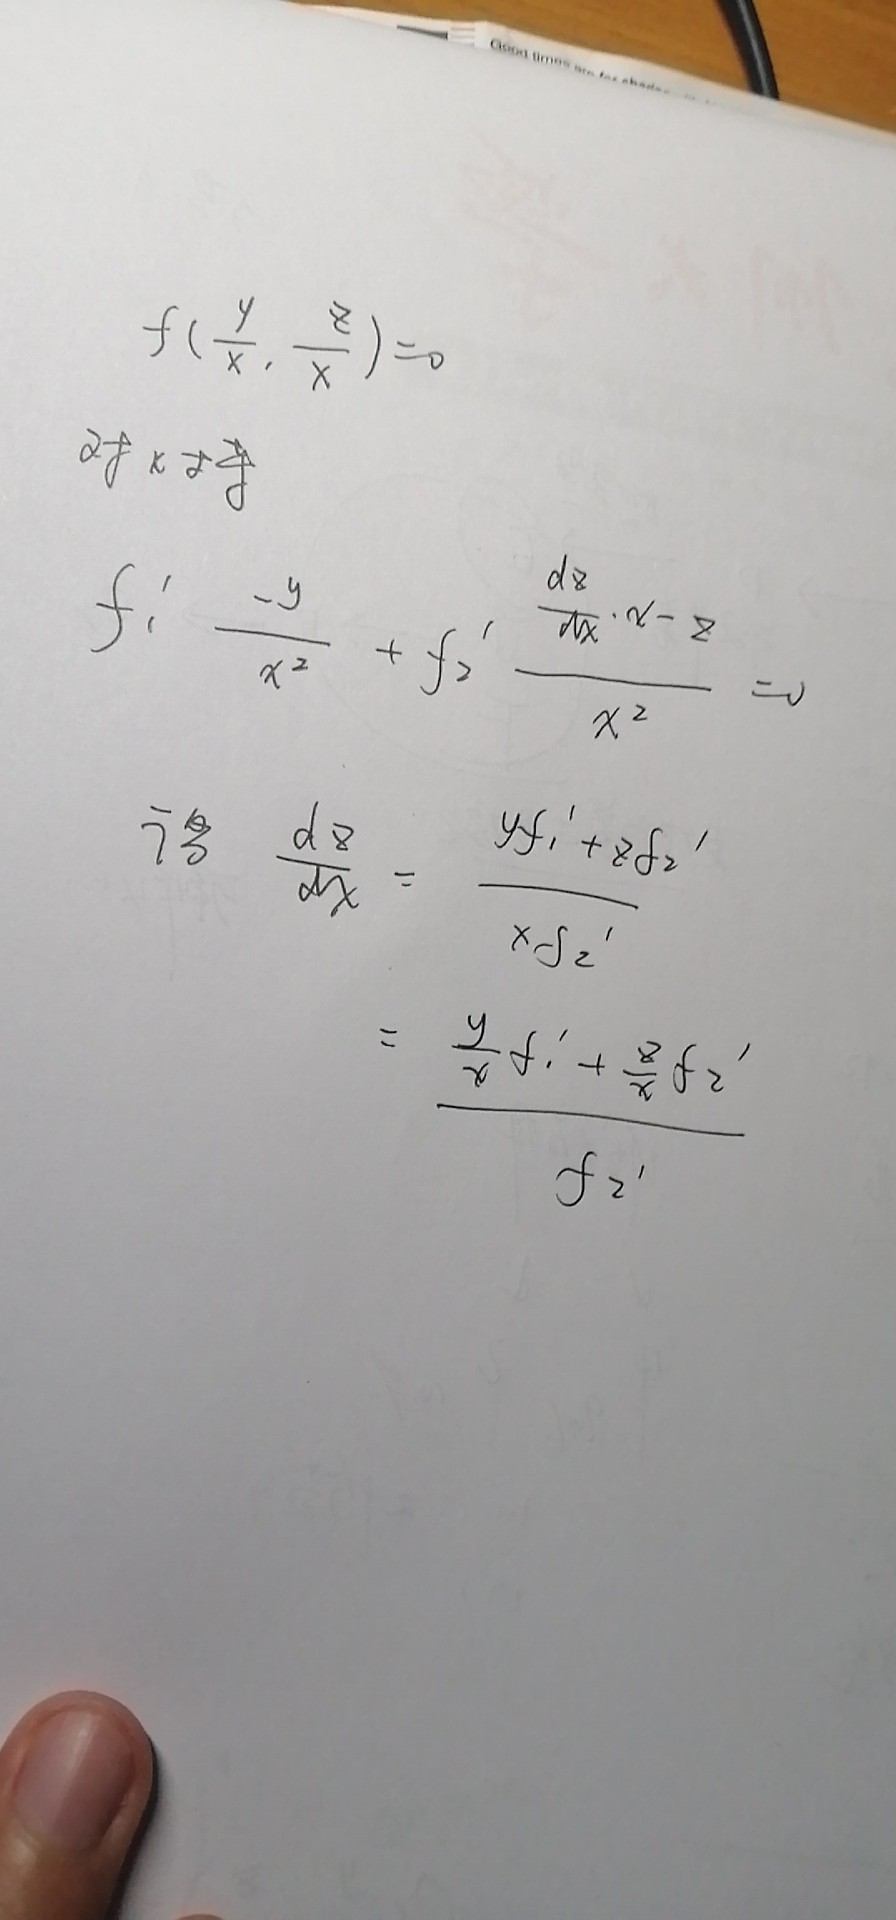 Good times are for
f(y/x, z/x)=0
对x求导
f₁′ -y/x² + f₂′ (dz/dx·x-z)/x² =0
得 dz/dx = (yf₁′+zf₂′)/(xf₂′)
= (y/x f₁′+z/x f₂′)/f₂′